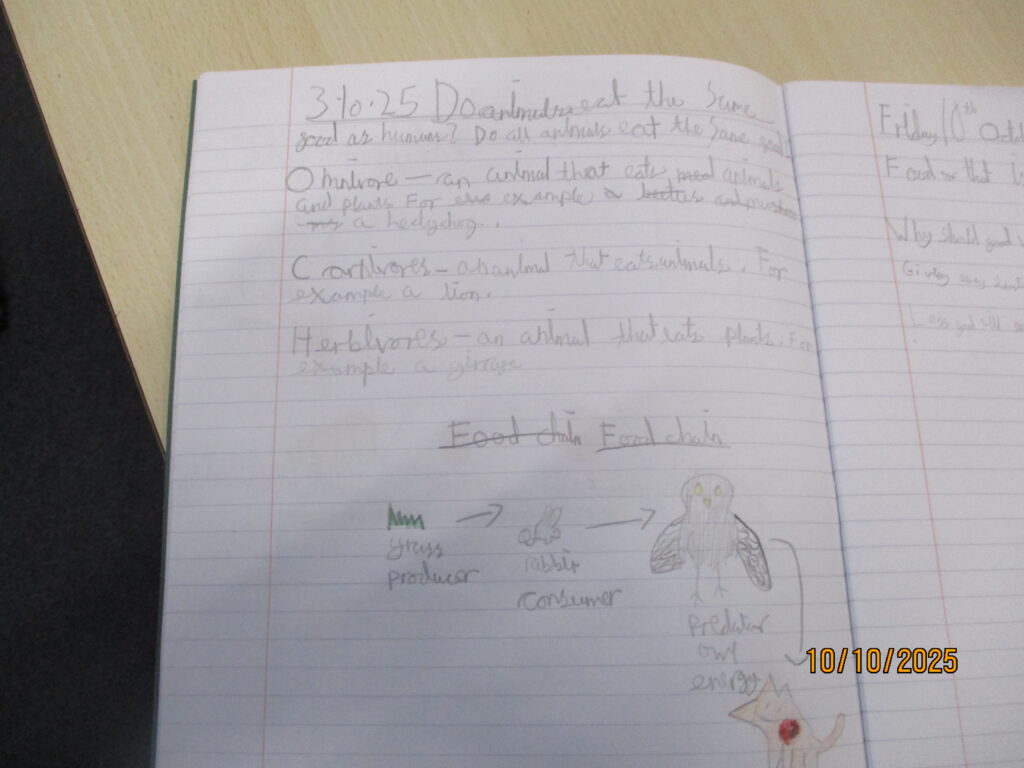 3.10.25 Do animals eat the same
food as humans? Do all animals eat the same food?
Omnivore - an animal that eats animals
and plants For example
a hedgehog.
Carnivores - an animal that eats animals. For
example a lion.
Herbivores - an animal that eats plants. For
example a girrage
Food chain Food chain
grass
producer
rabbit
consumer
Predator
owl
energy
10/10/2025
Friday 10th Octob
Food that
Why should food
Giving
Less